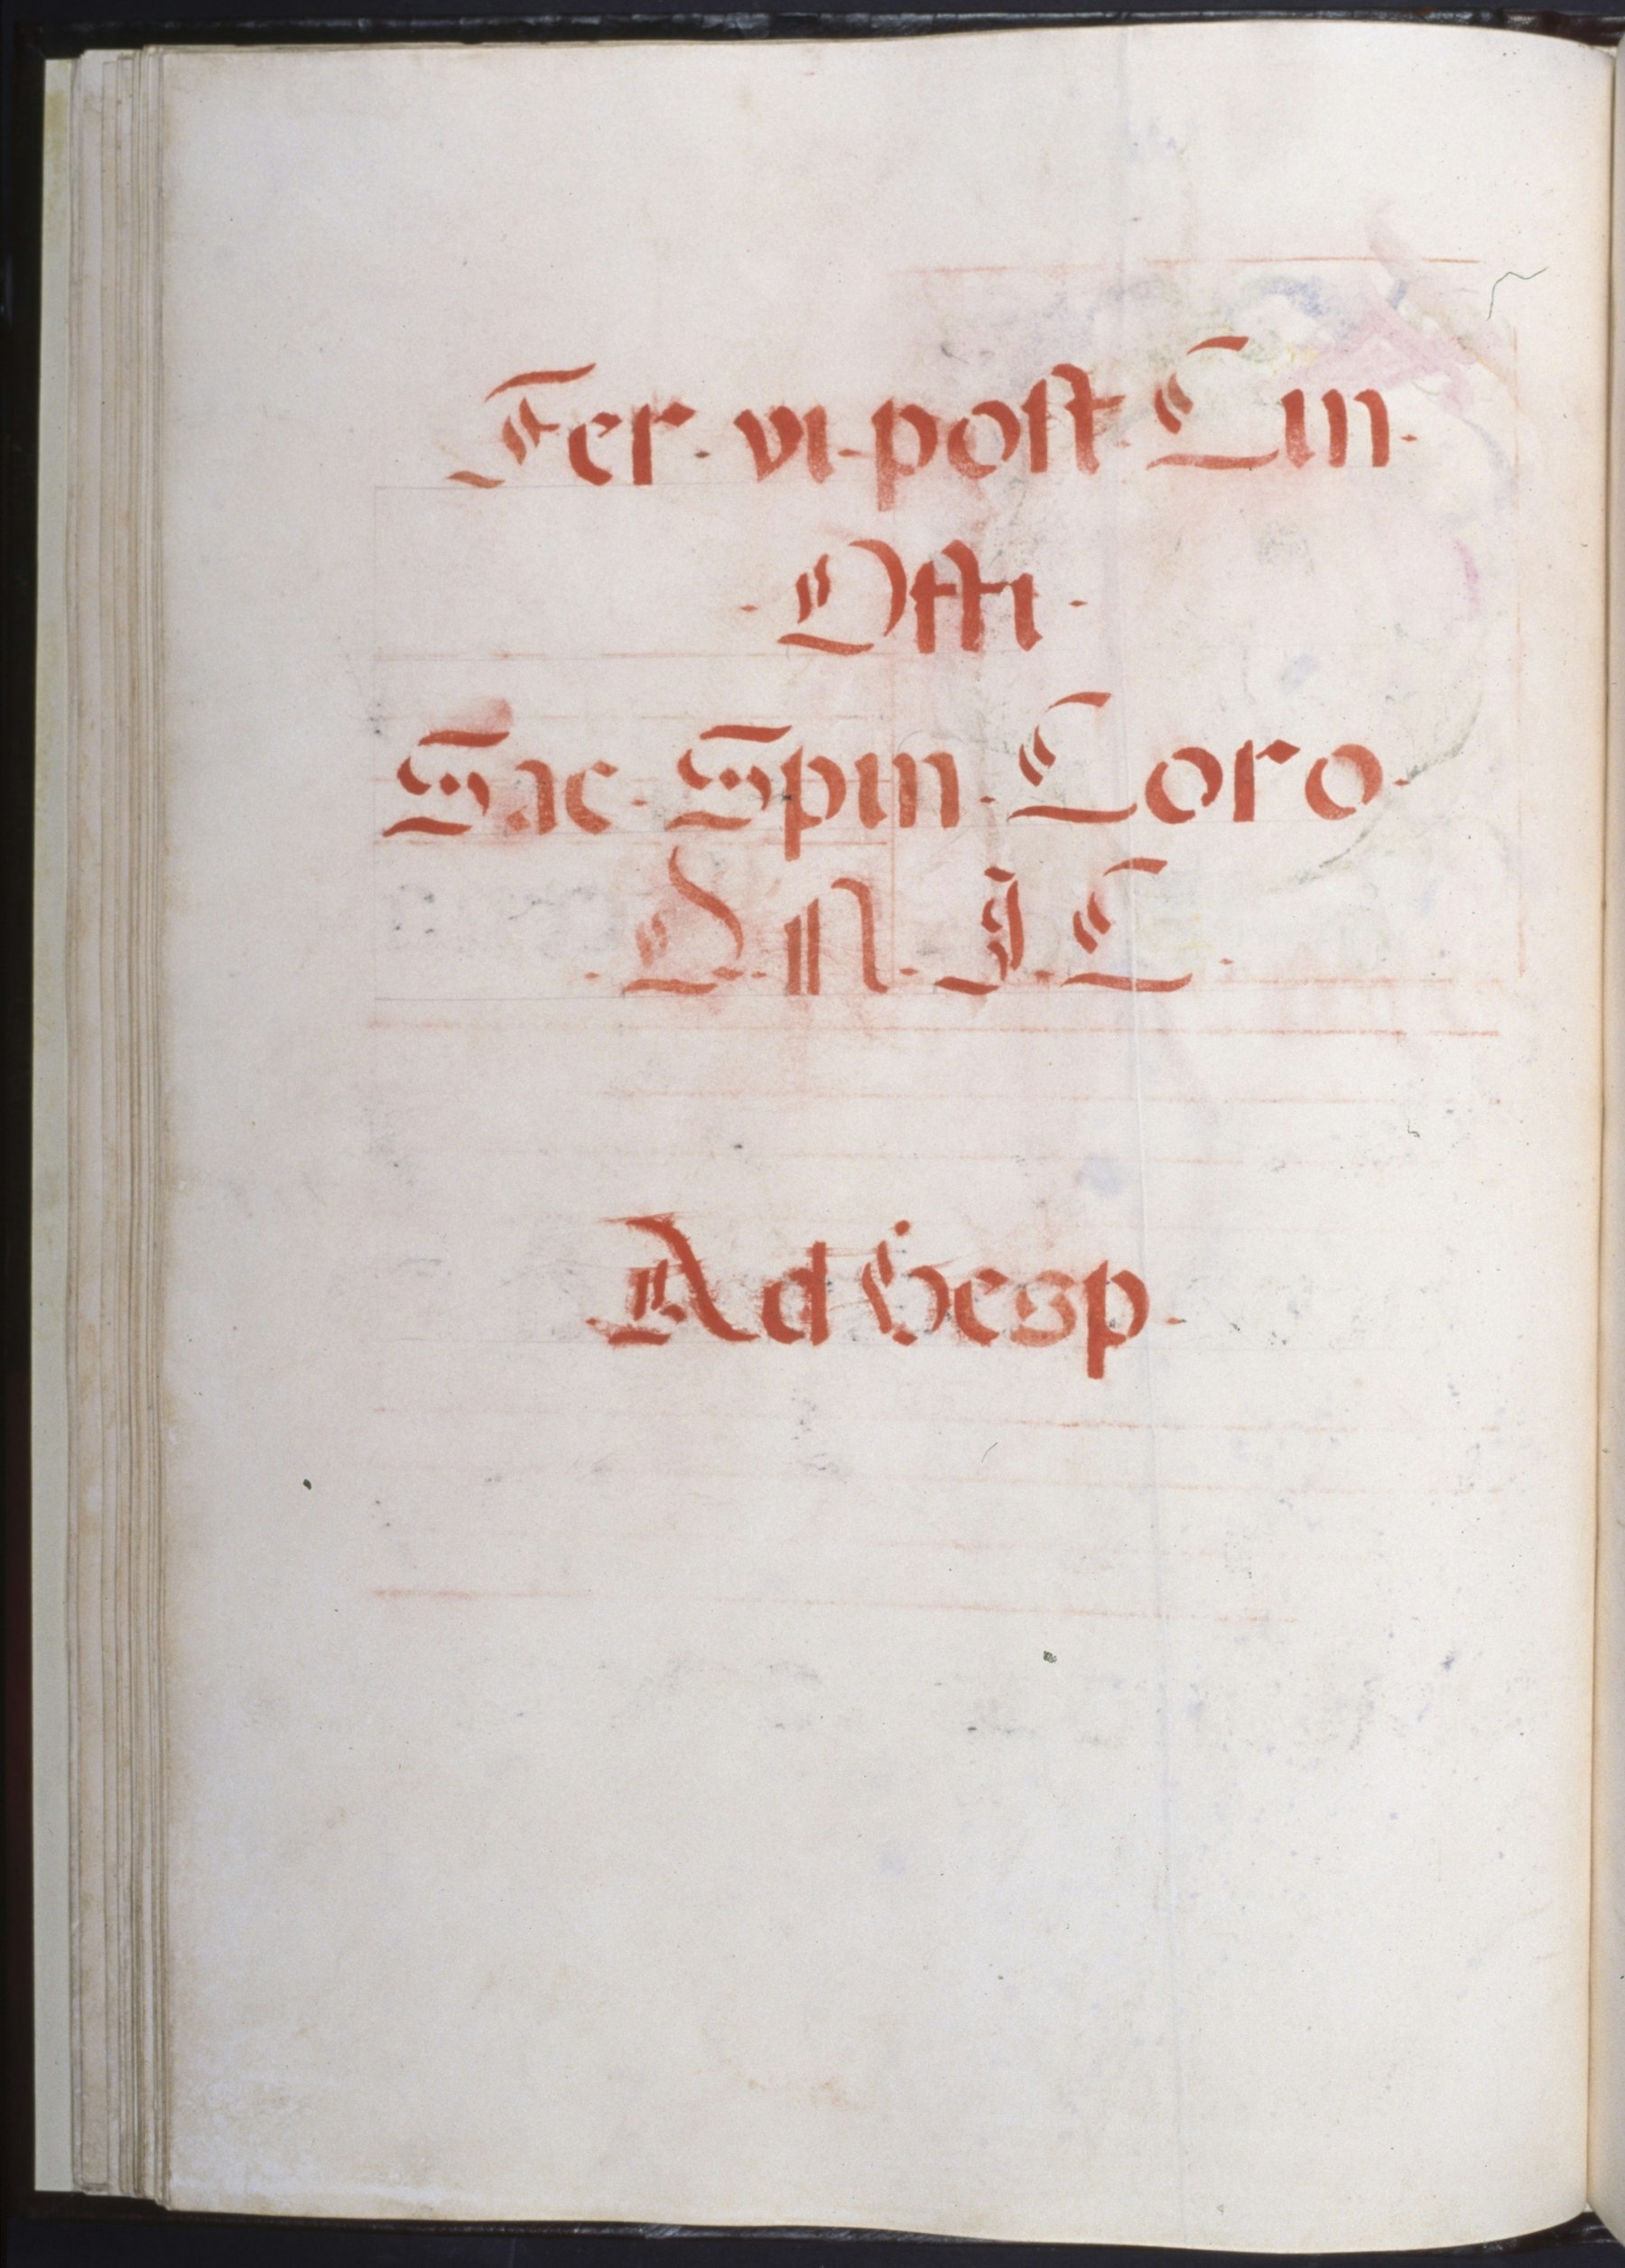 Fer · vi · post · Cin ·
· Offi ·
Sac · Spin · Coro ·
· D · N · J · C ·
· Ad Vesp ·